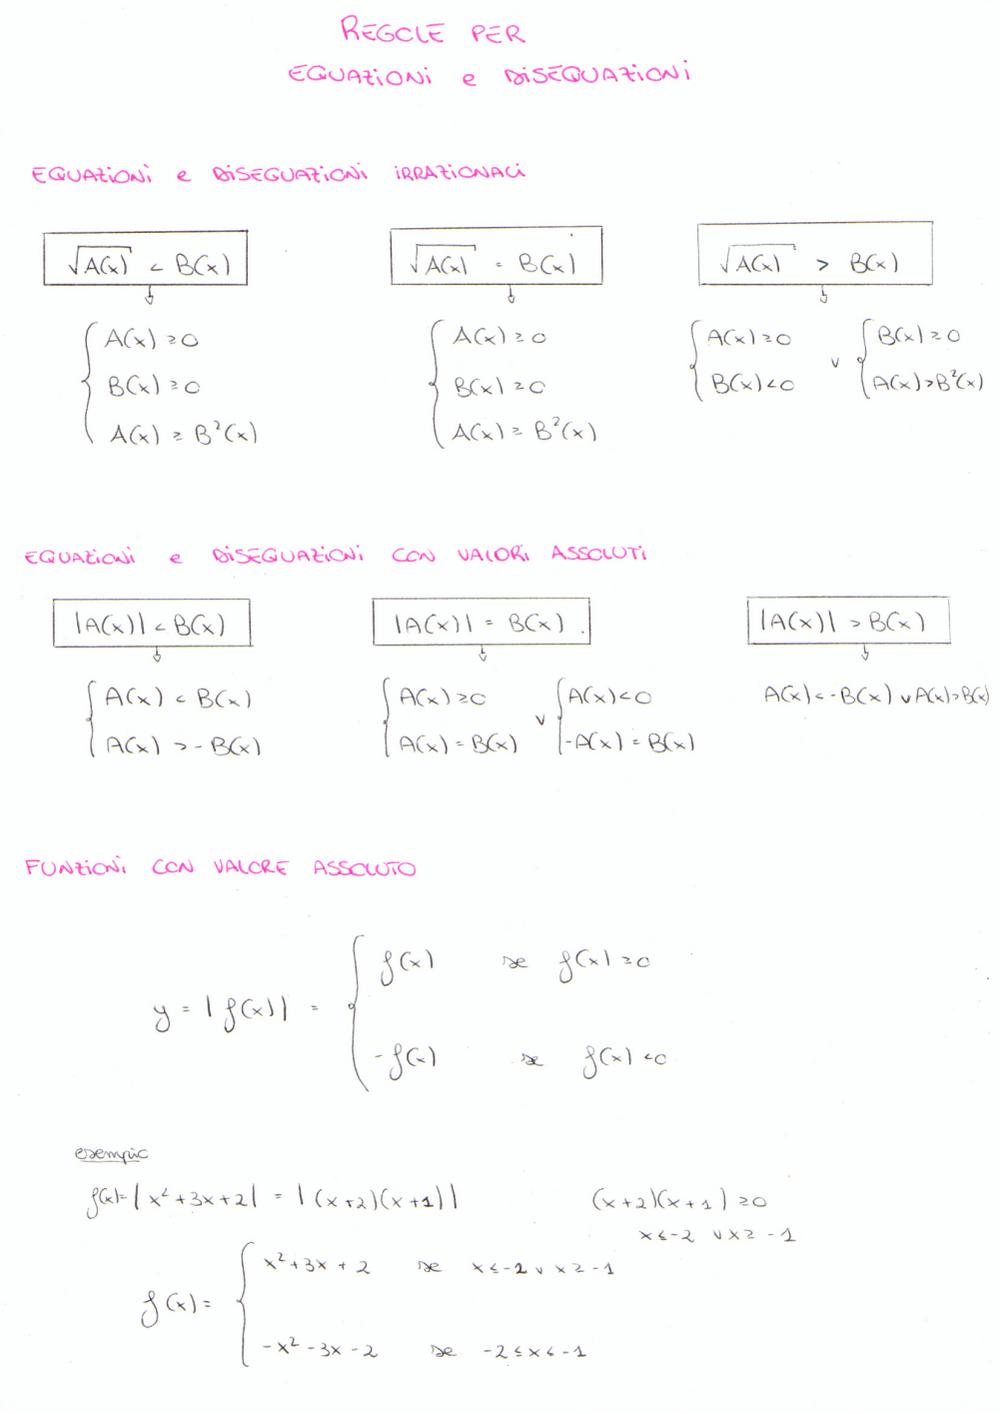 REGOLE PER
EQUAZIONI e DISEQUAZIONI
EQUAZIONI e DISEQUAZIONI IRRAZIONALI
√A(x) < B(x)
√A(x) = B(x)
√A(x) > B(x)
A(x) ≥ 0
B(x) ≥ 0
A(x) ≥ B²(x)
A(x) ≥ 0
B(x) ≥ 0
A(x) = B²(x)
A(x) ≥ 0
B(x) < 0
v
B(x) ≥ 0
A(x) > B²(x)
EQUAZIONI e DISEQUAZIONI CON VALORI ASSOLUTI
|A(x)| < B(x)
|A(x)| = B(x)
|A(x)| > B(x)
A(x) < B(x)
A(x) > -B(x)
A(x) ≥ 0
A(x) = B(x)
v
A(x) < 0
-A(x) = B(x)
A(x) < -B(x) v A(x) > B(x)
FUNZIONI CON VALORE ASSOLUTO
y = |f(x)| =
f(x) se f(x) ≥ 0
-f(x) se f(x) < 0
esempio
f(x) = |x² + 3x + 2| = |(x+2)(x+1)|
(x+2)(x+1) ≥ 0
x ≤ -2 v x ≥ -1
f(x) =
x² + 3x + 2 se x ≤ -2 v x ≥ -1
-x² - 3x - 2 se -2 ≤ x ≤ -1